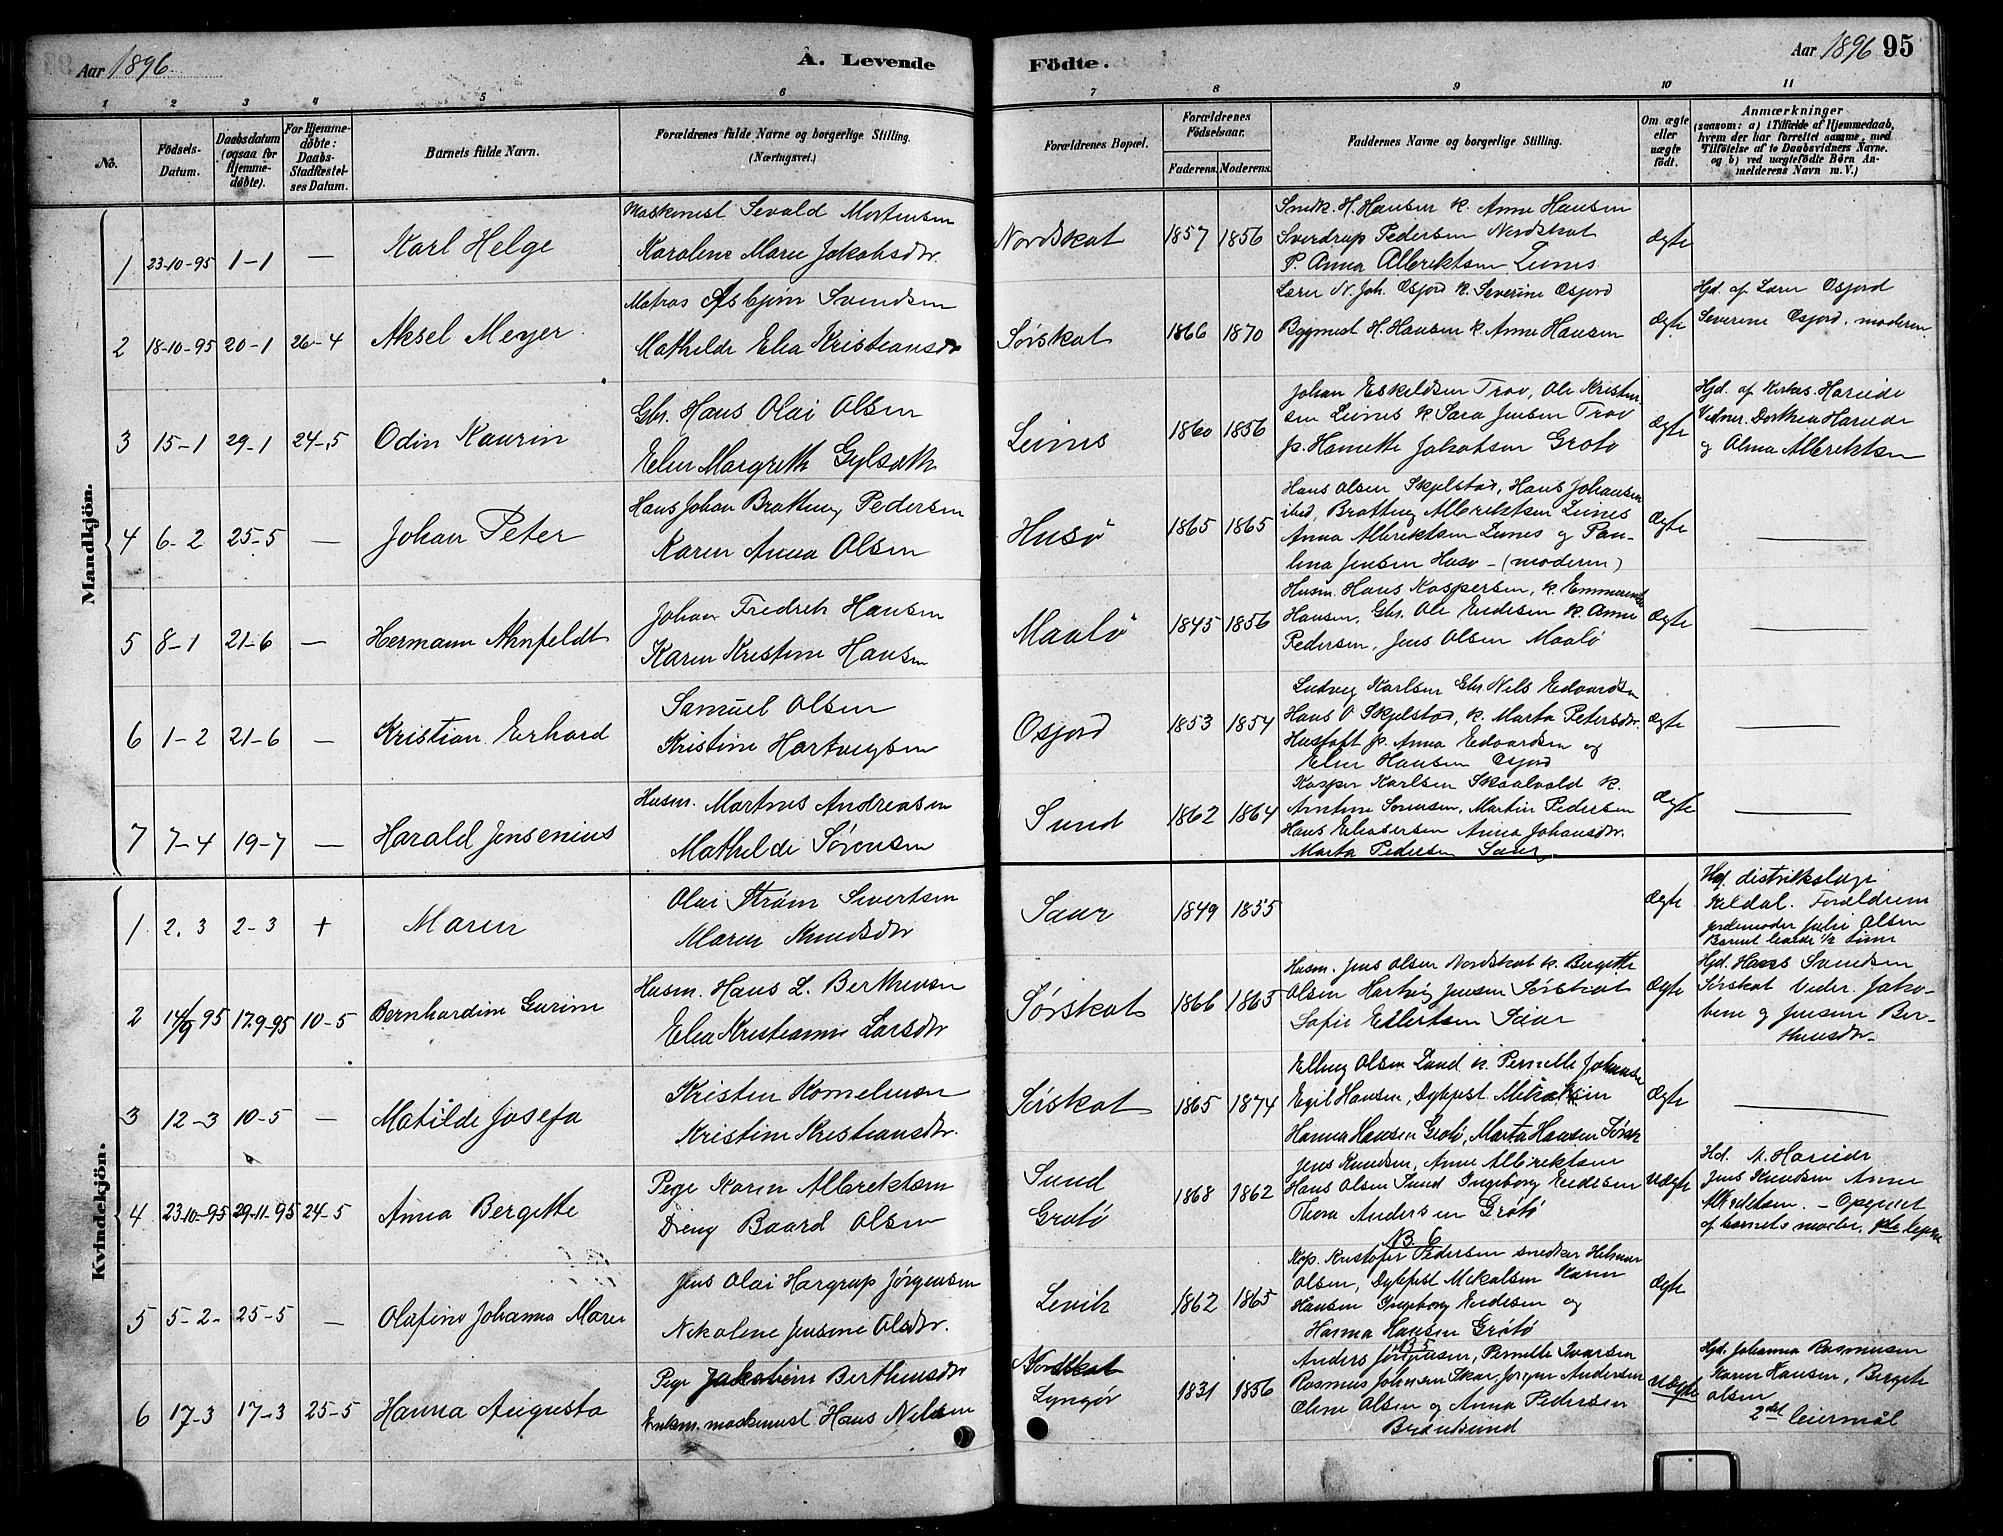 Aar 1896.
A. Levende
Födte.
Aar 1896 95
1 2 3 4 5 6 7 8 9 10 11
No.
Födsels-Datum.
Daabsdatum (ogsaa for Hjemme-döbte).
For Hjemme-döbte: Daabs-Stadfæstel-ses Datum.
Barnets fulde Navn.
Forældrenes fulde Navne og borgerlige Stilling.
(Næringsvei.)
Forældrenes Bopæl.
Forældrenes Födselsaar.
Faderens. Moderens.
Faddernes Navne og borgerlige Stilling.
Om ægte eller uægte födt.
Anmærkninger
(saasom: a) i Tilfælde af Hjemmedaab,
hvem der har forrettet samme, med
Tilföielse af to Daabsvidners Navne.
og b) ved uægtefödte Börn An-
melderens Navn m. V.)
Mandkjön.
1 23-10-95 1-1 — Karl Helge
Maskinist Sevald Mortensen
Karoline Marie Jakobsdtr.
Nordskot 1857 1856
Snedk. H. Hansen k. Anne Hansen
Sverdrup Pedersen Nordskot
P. Anna Albriktsen Leines
Ægte
2 18-10-95 20-1 26-4 Aksel Meyer
Matros Asbjørn Svendsen
Mathilde Elea Kristiansdtr
Sørskot 1866 1870
Lærer N. Joh. Osjord k. Severine Osjord
Bygmest H. Hansen k. Anne Hansen
Ægte
Hjd. af Lærer Osjord
Severine Osjord, moderen
3 15-1 29-1 24-5 Odin Kaurin
Gbr. Hans Olai Olsen
Elen Margreth Gylseth
Leines 1860 1856
Johan Eskildsen Trov, Ole Kristen-
sen Leines k Sara Jensen Trov
p. Hanette Jakobsen Grøtø
Ægte
Hjd. af Kirkes. Hareide
Vidner. Dorthea Hareide
og Alma Albriktsen
4 6-2 25-5 — Johan Peter
Hans Johan Brattung Pedersen
Karen Anna Olsen
Husø 1865 1865
Hans Olsen Skjelstad, Hans Johansen
ibid, Brattung Albriktsen Leines
Anna Albriktsen Leines og Pau-
lina Jensen Husø - (moderen)
Ægte —
5 8-1 21-6 — Hermann Ahnfeldt
Johan Fredrik Hansen
Karen Kristine Hansen
Maalø 1845 1856
Husm. Hans Kaspersen, k. Emmerentse
Hansen, Gbr. Ole Endesen k. Anne
Pedersen, Jens Olsen Maalø
Ægte —
6 1-2 21-6 — Kristian Erhard
Samuel Olsen
Kristine Hartvigsen
Osjord 1853 1854
Ludvig Karlsen Gbr. Nils Edvardsen
Hans O Skjelstad, k. Marta Petersdtr.
Hustoft p. Anna Edvardsen og
Elen Hansen Osjord
Ægte —
7 7-4 19-7 — Harald Jensenius
Husm. Martinus Andreassen
Mathilde Sørensen
Sund 1862 1864
Kasper Karlsen Skaalvold k.
Arntine Sørensen, Martin Pedersen
Hans Eliasersen Anna Johansdtr.
Marta Pedersen Saur.
Ægte —
Kvindekjön.
1 2.3 2-3 + Maren
Olai Strøm Sivertsen
Maren Knudsdtr
Saur 1849 1855
Ægte
Hjd. distriktslæge
Kildal. Forældrene
jordemoder Julie Olsen
Barnet levede 1/2 time
2 14/9 95 17-9-95 10-5 Bernhardine Gurine
Husm. Hans L. Berthensen
Elea Kristianne Larsdtr
Sørskot 1866 1865
Husm. Jens Olsen Nordskot k. Bergitte
Olsen Hartvig Jensen Sørskot
Sofie Ellertsen Saur
Ægte
Hjd. Hans Svendsen
Sørskot Vidner. Jako-
bine og Jensine Ber-
thensdtr.
3 12-3 10-5 — Matilde Josefa
Kristen Korneliussen
Kristine Kristiansdtr.
Sørskot 1865 1874
Elling Olsen Sund k. Pernille Johansen
Egil Hansen, Dybfest Mikalsen
Hanna Hansen Grøtø, Marta Hansen Sørsk
Ægte —
4 23-10-95 29-11-95 24-5 Anna Bergitte
Pige Karen Albrektsen
Dreng Baard Olsen
Sund
Grøtø
1868 1862
Jens Knudsen, Anne Albriktsen
Hans Olsen Sund Ingeborg Endesen
Thora Andersen Grøtø
Uægte
Hd. M. Hareide
Jens Knudsen Anne
Albrektsen. - Opgivet
af barnets moder,
5 5-2- 25-5 — Olafine Johanna Maren
Jens Olai Hargrup Jørgensen
Nikoline Jensine Olsdtr.
Levik 1862 1865
NB. 6
Kristofer Pedersen snedker Hilmar
Olsen, Dybfest Mikalsen Karen
Hansen Ingeborg Endesen og
Hanna Hansen Grøtø
Ægte
6 17-3 17-3 25-5 Hanna Augusta
Pige Jakobine Berthensdtr
Enkem. maskinist Hans Nilsen
Nordskot
Lyngør
1831 1856
NB 5
Anders Jørgensen, Pernille Ivarsen
Rasmus Johnsen Skar, Jørgen Andersen
Oline Olsen og Anna Pedersen
Brændsund
Uægte
Hjd. Johanna Rasmussen
Karen Hansen, Bergete
Olsen
2det leiermål